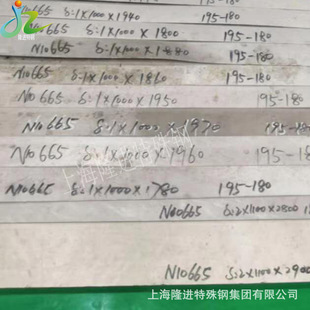 隆进特钢
N10665 δ:1×1000×1940 195-180
N10665 δ:1×1000×1800 195-180
N10665 δ:1×1000×1880 195-180
N10665 δ:1×1000×1860 195-180
N0665 δ:1×1000×1950 195-180
N10665 δ:1×1000×1970 195-180
N10665 δ:1×1000×1960 195-18
N10665 δ:1×1000×1780 195-180
N10665 δ:2×1100×2800
N10665 δ:2×1100×2900
上海隆进特殊钢集团有限公司